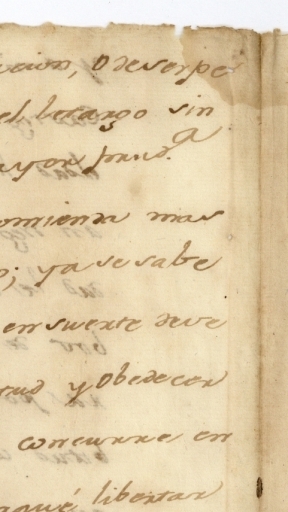 o deserpe
el letargo sin
ayor prud.a
omienda mas
o; ya se sabe
en suerte deve
tud y obedecer
concurre en
qué libertar